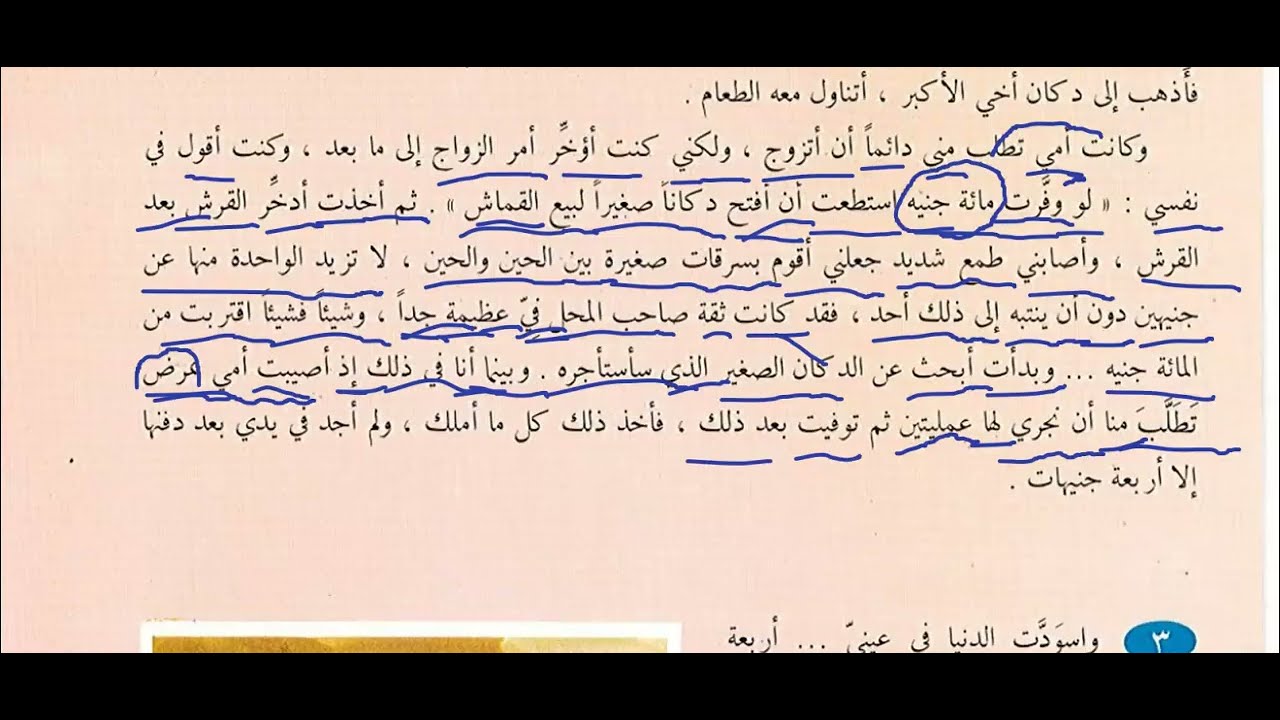 فأذهب إلى دكان أخي الأكبر ، أتناول معه الطعام .
وكانت أمي تطلب مني دائماً أن أتزوج ، ولكني كنت أؤخِّر أمر الزواج إلى ما بعد ، وكنت أقول في
نفسي : « لو وفَّرت مائة جنيه استطعت أن أفتح دكاناً صغيراً لبيع القماش » . ثم أخذت أدخِّر القرش بعد
القرش ، وأصابني طمع شديد جعلني أقوم بسرقات صغيرة بين الحين والحين ، لا تزيد الواحدة منها عن
جنيهين دون أن ينتبه إلى ذلك أحد ، فقد كانت ثقة صاحب المحل فيّ عظيمة جداً ، وشيئاً فشيئاً اقتربت من
المائة جنيه ... وبدأت أبحث عن الدكان الصغير الذي سأستأجره . وبينما أنا في ذلك إذ أصيبت أمي بمرض
تَطَلَّبَ منا أن نجري لها عمليتين ثم توفيت بعد ذلك ، فأخذ ذلك كل ما أملك ، ولم أجد في يدي بعد دفنها
إلا أربعة جنيهات .
٣ واسوَدَّت الدنيا في عينيّ ... أربعة